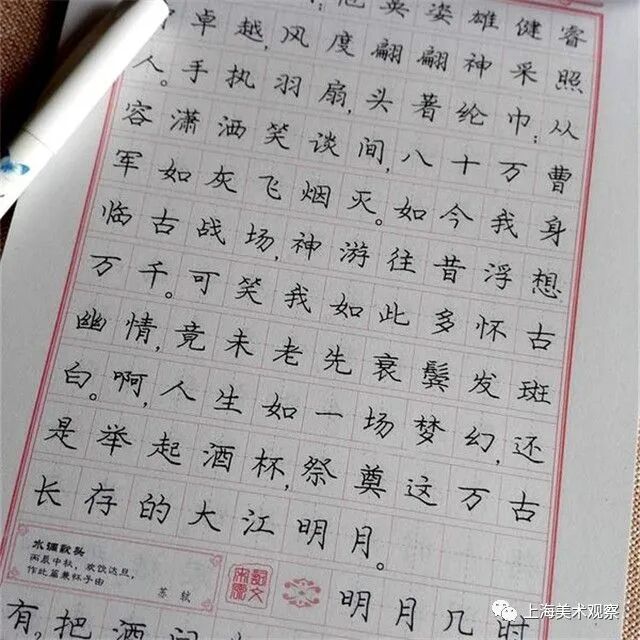 他英姿雄健睿
卓越,风度翩翩神采照
人。手执羽扇,头著纶巾;从
容潇洒笑谈间,八十万曹
军如灰飞烟灭。如今我身
临古战场,神游往昔浮想
万千。可笑我如此多怀古
幽情,竟未老先衰鬓发斑
白。啊,人生如一场梦幻,还
是举起酒杯,祭奠这万古
长存的大江明月。
水调歌头
丙辰中秋,欢饮达旦,
作此篇兼怀子由
苏轼
明月几时
有,把酒问
上海美术观察